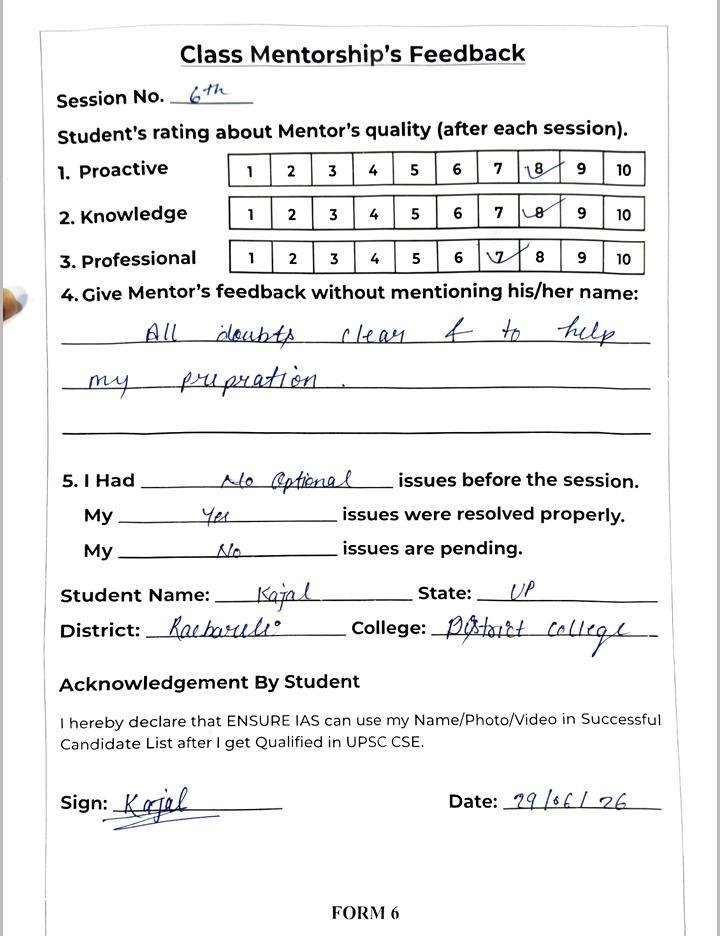 Class Mentorship's Feedback
Session No. 6th
Student's rating about Mentor's quality (after each session).
1. Proactive 1 2 3 4 5 6 7 8 9 10
2. Knowledge 1 2 3 4 5 6 7 8 9 10
3. Professional 1 2 3 4 5 6 7 8 9 10
4. Give Mentor's feedback without mentioning his/her name:
All doubts clear & to help
my prepration .
5. I Had No Optional issues before the session.
My Yes issues were resolved properly.
My No issues are pending.
Student Name: Kajal State: UP
District: Raebareli College: District college
Acknowledgement By Student
I hereby declare that ENSURE IAS can use my Name/Photo/Video in Successful
Candidate List after I get Qualified in UPSC CSE.
Sign: Kajal Date: 29/06/26
FORM 6